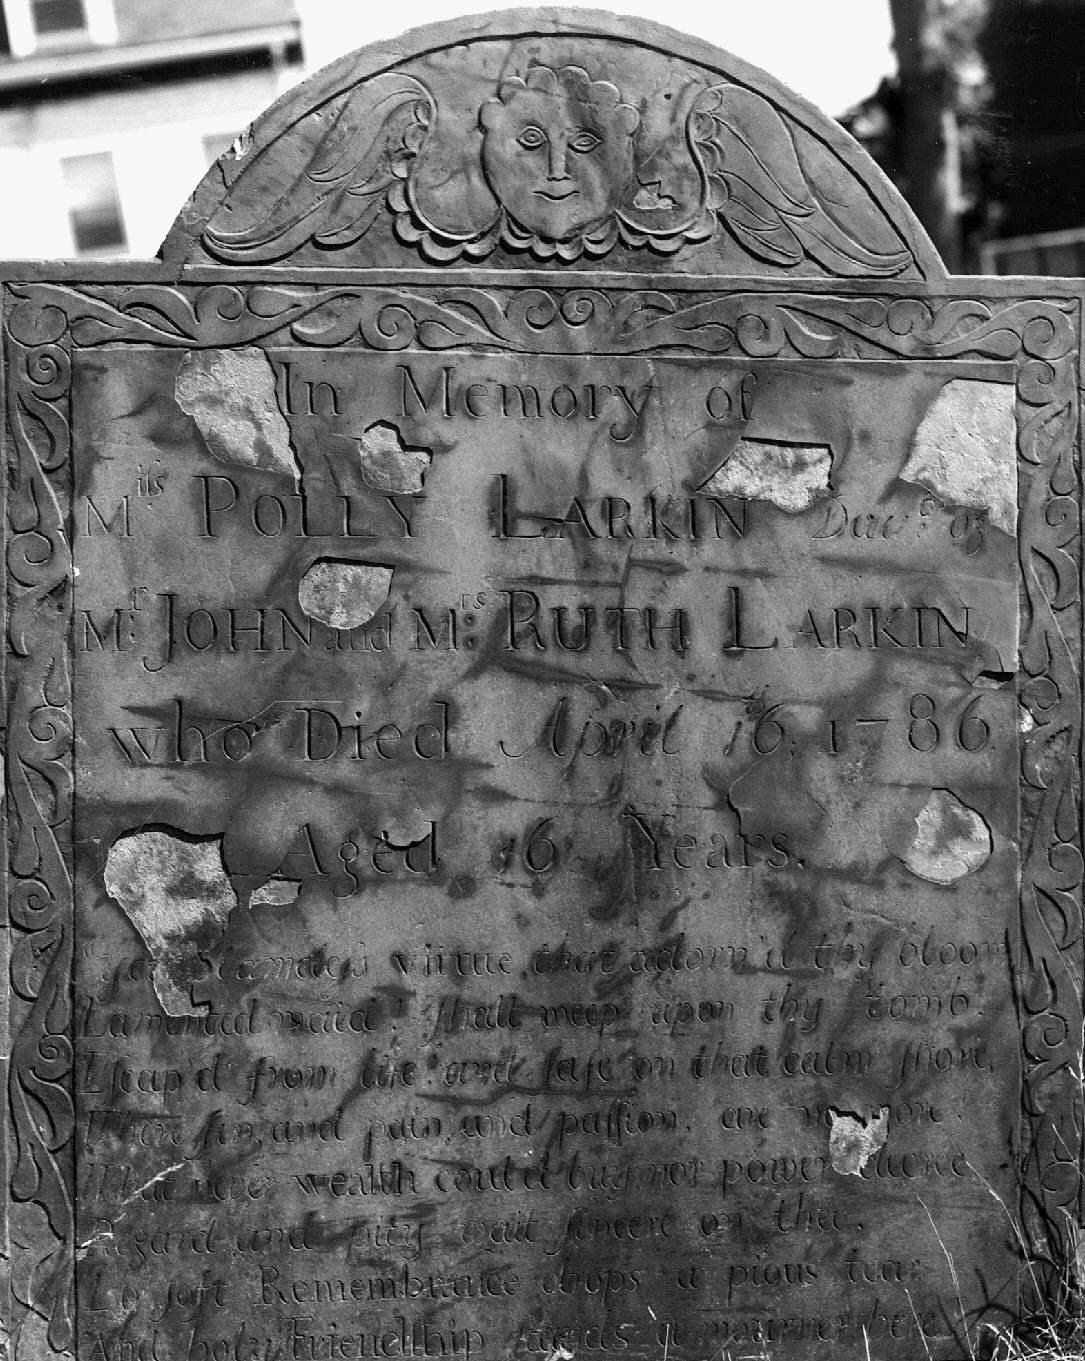 In Memory of
Miſs POLLY LARKIN Daur. of
Mr. JOHN and Mrs. RUTH LARKIN
who Died April 16, 1786,
Aged 16 Years.
"yet blameleſs virtue, that adorn'd thy bloom
Lamented maid! ſhall weep upon thy tomb.
Eſcap'd from life and ſafe on that calm ſhore,
Where ſin, and pain, and paſſion, are no more.
What never wealth could buy, nor power decree
Regard and pity wait ſincere on thee.
Lo ſoft Remembrance drops a pious tear
And holy Friendſhip ſtands a mourner here